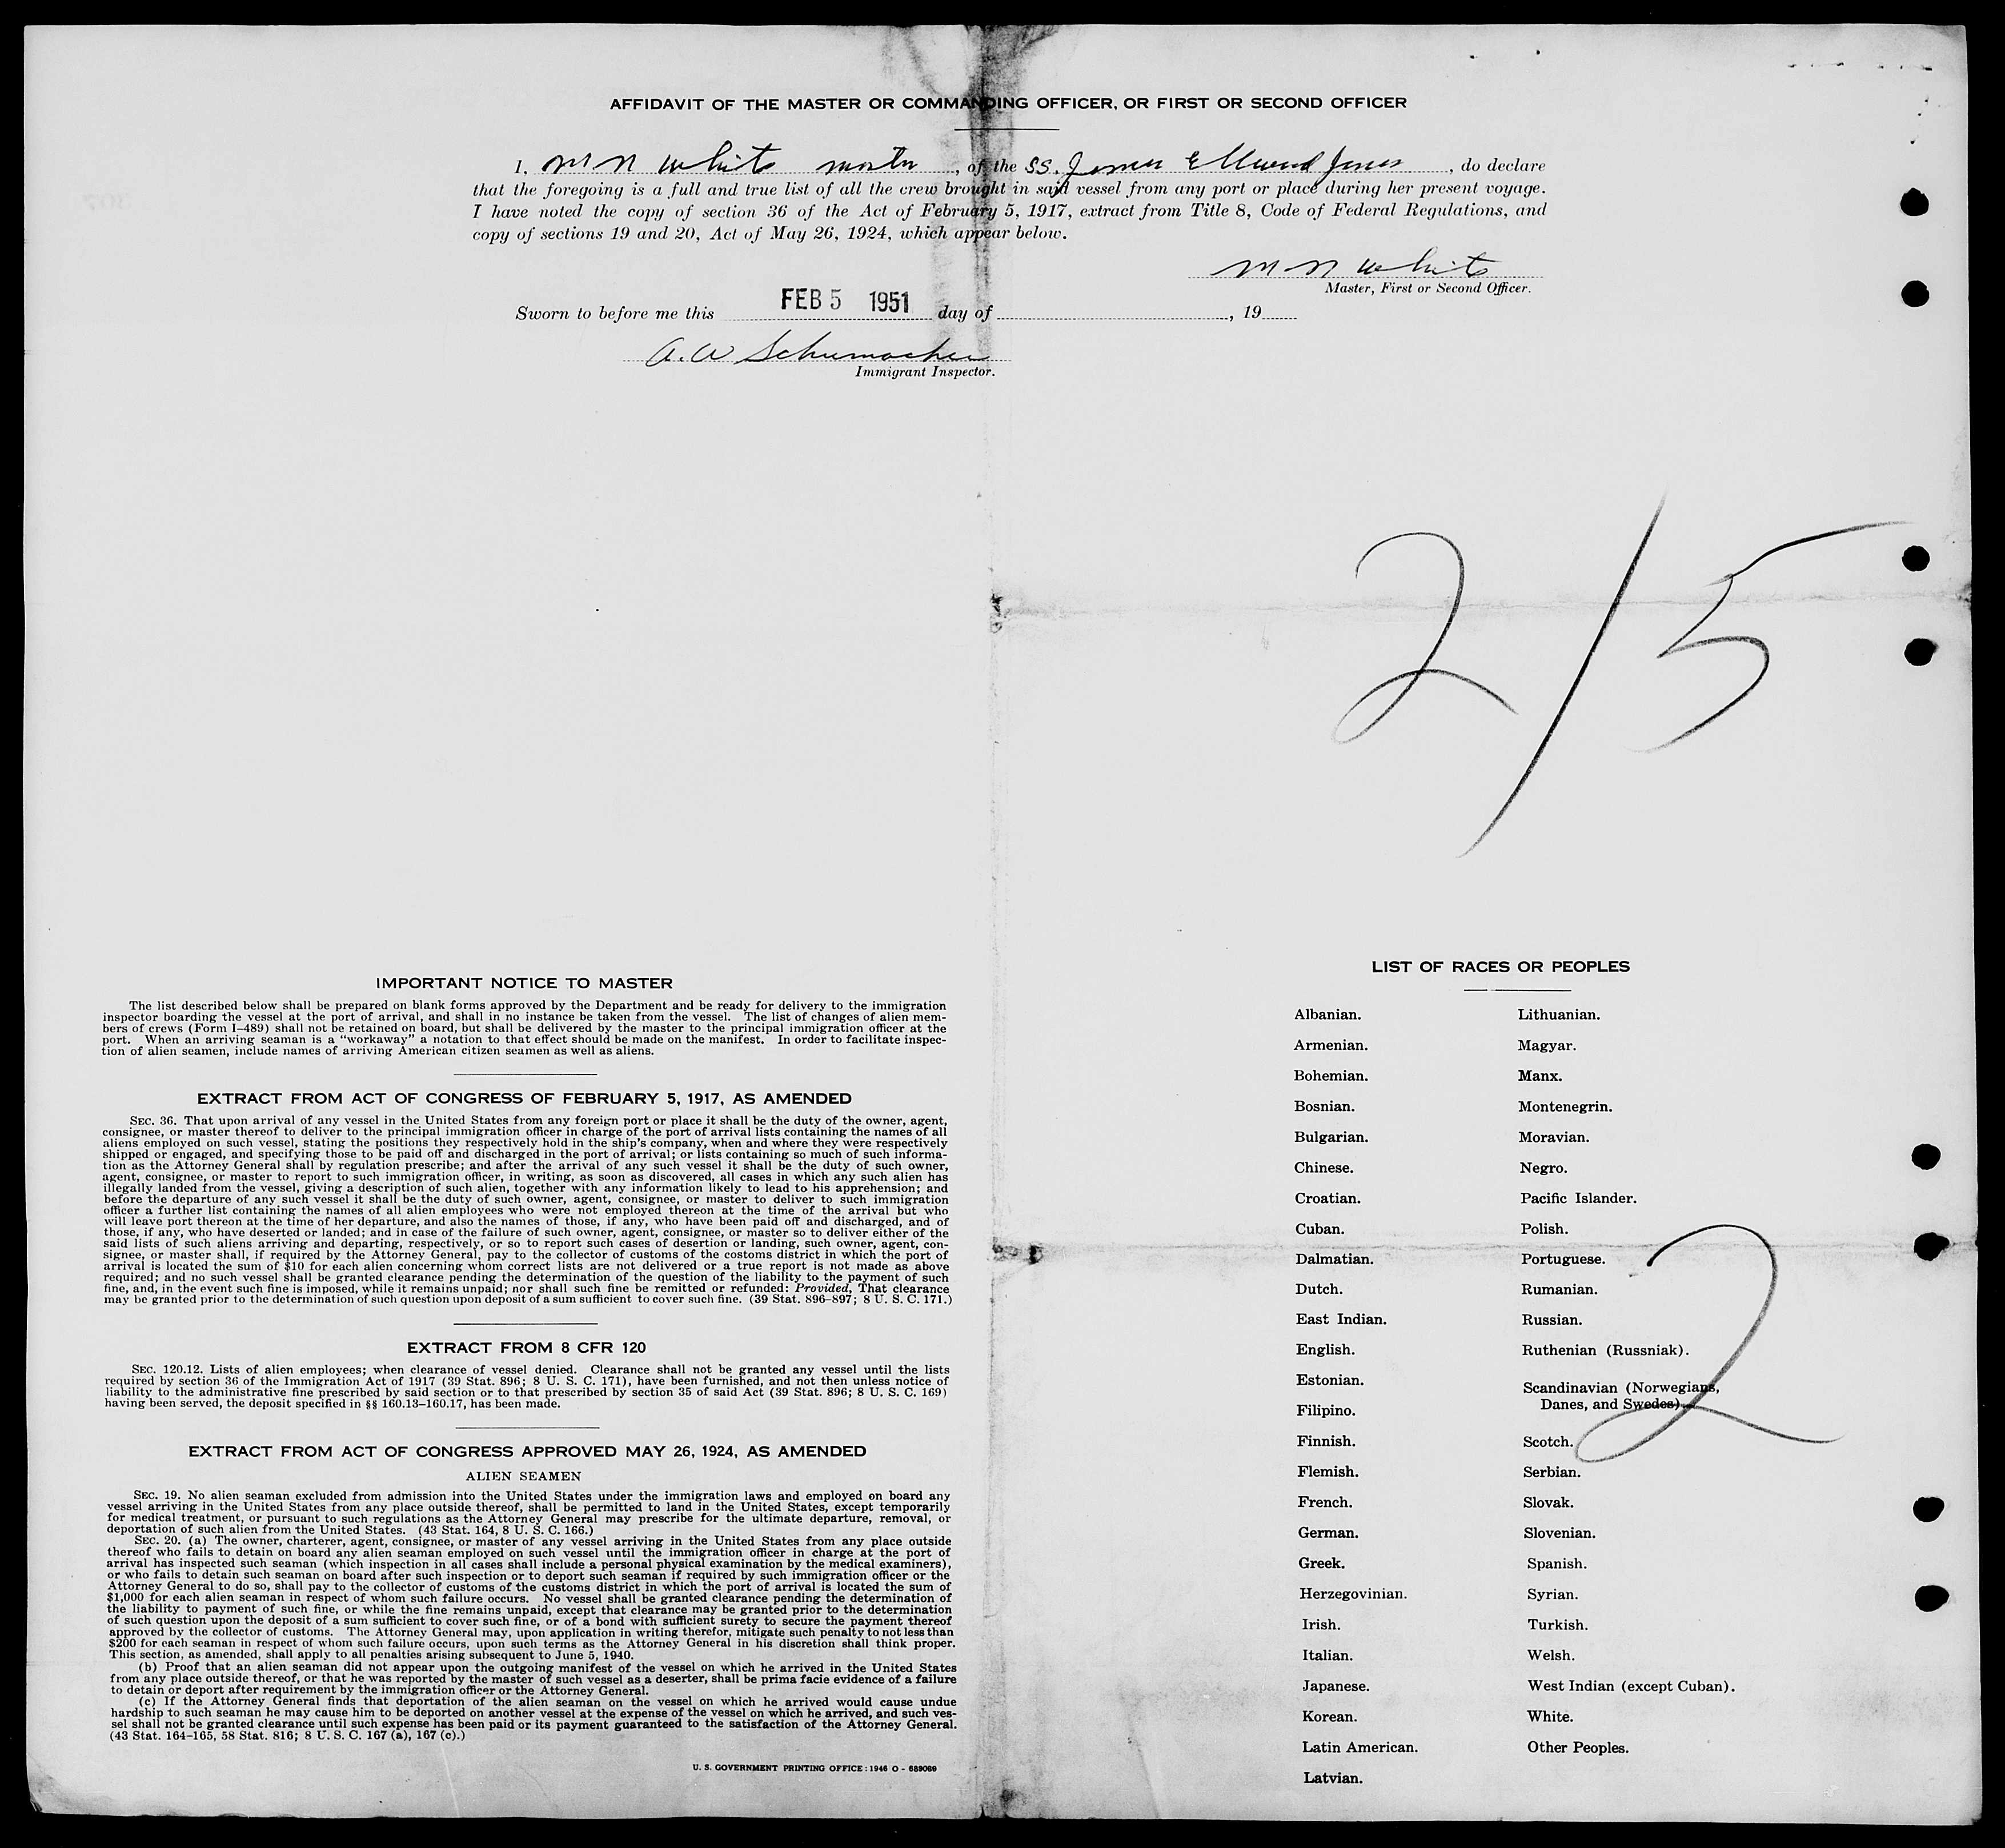 AFFIDAVIT OF THE MASTER OR COMMANDING OFFICER, OR FIRST OR SECOND OFFICER
I, M N White master, of the SS. James Ellwood Jones, do declare
that the foregoing is a full and true list of all the crew brought in said vessel from any port or place during her present voyage.
I have noted the copy of section 36 of the Act of February 5, 1917, extract from Title 8, Code of Federal Regulations, and
copy of sections 19 and 20, Act of May 26, 1924, which appear below.
M N White
Master, First or Second Officer.
Sworn to before me this FEB 5 1951 day of , 19
A. W Schumacher
Immigrant Inspector.
2/5
IMPORTANT NOTICE TO MASTER
The list described below shall be prepared on blank forms approved by the Department and be ready for delivery to the immigration
inspector boarding the vessel at the port of arrival, and shall in no instance be taken from the vessel. The list of changes of alien mem-
bers of crews (Form I-489) shall not be retained on board, but shall be delivered by the master to the principal immigration officer at the
port. When an arriving seaman is a "workaway" a notation to that effect should be made on the manifest. In order to facilitate inspec-
tion of alien seamen, include names of arriving American citizen seamen as well as aliens.
EXTRACT FROM ACT OF CONGRESS OF FEBRUARY 5, 1917, AS AMENDED
SEC. 36. That upon arrival of any vessel in the United States from any foreign port or place it shall be the duty of the owner, agent,
consignee, or master thereof to deliver to the principal immigration officer in charge of the port of arrival lists containing the names of all
aliens employed on such vessel, stating the positions they respectively hold in the ship's company, when and where they were respectively
shipped or engaged, and specifying those to be paid off and discharged in the port of arrival; or lists containing so much of such informa-
tion as the Attorney General shall by regulation prescribe; and after the arrival of any such vessel it shall be the duty of such owner,
agent, consignee, or master to report to such immigration officer, in writing, as soon as discovered, all cases in which any such alien has
illegally landed from the vessel, giving a description of such alien, together with any information likely to lead to his apprehension; and
before the departure of any such vessel it shall be the duty of such owner, agent, consignee, or master to deliver to such immigration
officer a further list containing the names of all alien employees who were not employed thereon at the time of the arrival but who
will leave port thereon at the time of her departure, and also the names of those, if any, who have been paid off and discharged, and of
those, if any, who have deserted or landed; and in case of the failure of such owner, agent, consignee, or master so to deliver either of the
said lists of such aliens arriving and departing, respectively, or so to report such cases of desertion or landing, such owner, agent, con-
signee, or master shall, if required by the Attorney General, pay to the collector of customs of the costoms district in which the port of
arrival is located the sum of $10 for each alien concerning whom correct lists are not delivered or a true report is not made as above
required; and no such vessel shall be granted clearance pending the determination of the question of the liability to the payment of such
fine, and, in the event such fine is imposed, while it remains unpaid; nor shall such fine be remitted or refunded: Provided, That clearance
may be granted prior to the determination of such question upon deposit of a sum sufficient to cover such fine. (39 Stat. 896-897; 8 U. S. C. 171.)
EXTRACT FROM 8 CFR 120
SEC. 120.12. Lists of alien employees; when clearance of vessel denied. Clearance shall not be granted any vessel until the lists
required by section 36 of the Immigration Act of 1917 (39 Stat. 896; 8 U. S. C. 171), have been furnished, and not then unless notice of
liability to the administrative fine prescribed by said section or to that prescribed by section 35 of said Act (39 Stat. 896; 8 U. S. C. 169)
having been served, the deposit specified in §§ 160.13-160.17, has been made.
EXTRACT FROM ACT OF CONGRESS APPROVED MAY 26, 1924, AS AMENDED
ALIEN SEAMEN
SEC. 19. No alien seaman excluded from admission into the United States under the immigration laws and employed on board any
vessel arriving in the United States from any place outside thereof, shall be permitted to land in the United States, except temporarily
for medical treatment, or pursuant to such regulations as the Attorney General may prescribe for the ultimate departure, removal, or
deportation of such alien from the United States. (43 Stat. 164, 8 U. S. C. 166.)
SEC. 20. (a) The owner, charterer, agent, consignee, or master of any vessel arriving in the United States from any place outside
thereof who fails to detain on board any alien seaman employed on such vessel until the immigration officer in charge at the port of
arrival has inspected such seaman (which inspection in all cases shall include a personal physical examination by the medical examiners),
or who fails to detain such seaman on board after such inspection or to deport such seaman if required by such immigration officer or the
Attorney General to do so, shall pay to the collector of customs of the customs district in which the port of arrival is located the sum of
$1,000 for each alien seaman in respect of whom such failure occurs. No vessel shall be granted clearance pending the determination of
the liability to payment of such fine, or while the fine remains unpaid, except that clearance may be granted prior to the determination
of such question upon the deposit of a sum sufficient to cover such fine, or of a bond with sufficient surety to secure the payment thereof
approved by the collector of customs. The Attorney General may, upon application in writing therefor, mitigate such penalty to not less than
$200 for each seaman in respect of whom such failure occurs, upon such terms as the Attorney General in his discretion shall think proper.
This section, as amended, shall apply to all penalties arising subsequent to June 5, 1940.
(b) Proof that an alien seaman did not appear upon the outgoing manifest of the vessel on which he arrived in the United States
from any place outside thereof, or that he was reported by the master of such vessel as a deserter, shall be prima facie evidence of a failure
to detain or deport after requirement by the immigration officer or the Attorney General.
(c) If the Attorney General finds that deportation of the alien seaman on the vessel on which he arrived would cause undue
hardship to such seaman he may cause him to be deported on another vessel at the expense of the vessel on which he arrived, and such ves-
sel shall not be granted clearance until such expense has been paid or its payment guaranteed to the satisfaction of the Attorney General.
(43 Stat. 164-165, 58 Stat. 816; 8 U. S. C. 167 (a), 167 (c).)
U. S. GOVERNMENT PRINTING OFFICE : 1946 O - 689069
LIST OF RACES OR PEOPLES
Albanian.
Armenian.
Bohemian.
Bosnian.
Bulgarian.
Chinese.
Croatian.
Cuban.
Dalmatian.
Dutch.
East Indian.
English.
Estonian.
Filipino.
Finnish.
Flemish.
French.
German.
Greek.
Herzegovinian.
Irish.
Italian.
Japanese.
Korean.
Latin American.
Latvian.
Lithuanian.
Magyar.
Manx.
Montenegrin.
Moravian.
Negro.
Pacific Islander.
Polish.
Portuguese.
Rumanian.
Russian.
Ruthenian (Russniak).
Scandinavian (Norwegians,
Danes, and Swedes).
Scotch.
Serbian.
Slovak.
Slovenian.
Spanish.
Syrian.
Turkish.
Welsh.
West Indian (except Cuban).
White.
Other Peoples.
2